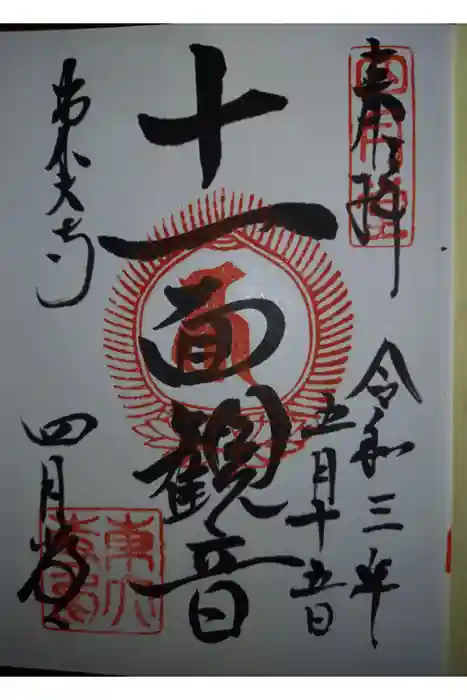 奉拝
令和三年
五月十五日
十一面観音
東大寺
四月堂
四月堂